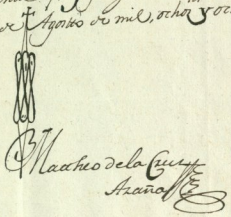 de Agosto de mil, ochoz y och
Matheo dela Cruz
Azaña